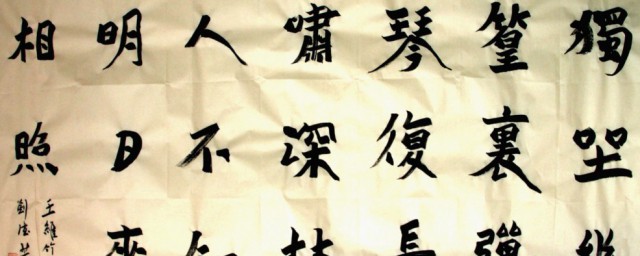 獨坐幽
篁裏彈
琴復長
嘯深林
人不知
明月來
相照
王維竹